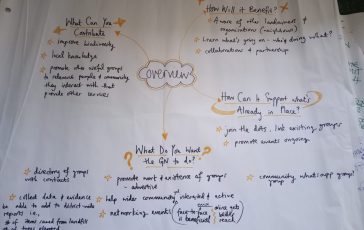 What Can You
Contribute
* improve biodiversity
* local knowledge
* promote other useful groups
to relevant people & community
they interact with that
provide other services
How Will it Benefit?
* Aware of other landowners &
organisations (neighbours)
* Learn what's going on - who's doing what?
* collaborations & partnership
overview
How Can It Support what's
Already in Place?
* join the dots, link existing groups
* promote events ongoing
What Do You Want
the GN to do?
* directory of groups
with contacts
* collect data & evidence
be able to add to district-wide
reports i.e.,
# items saved from landfill
# of trees planted
* promote work & existence of groups
- advertise
* help wider community get interested & active
* networking events
face-to-face
is beneficial
online gets
wider
reach
* community whatsapp group?